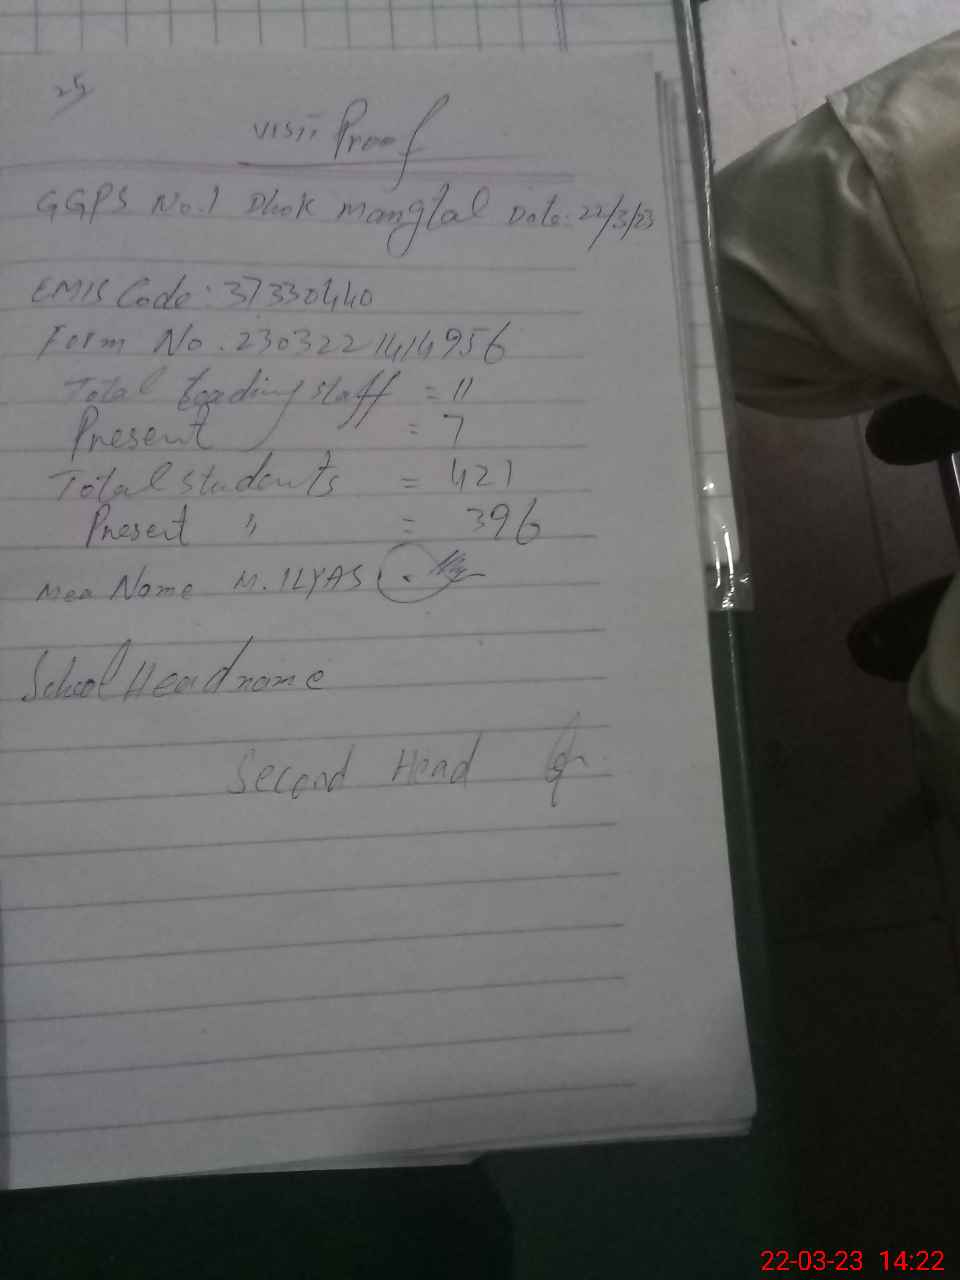 25
Visit Proof
GGPS No.1 Dhok Mangtal Date: 22/3/23
EMIS Code: 37330440
Form No. 2303221414956
Total teading staff = 11
Present = 7
Total students = 421
Present " = 396
Mea Name M. ILYAS
School Head name
Second Head
22-03-23 14:22